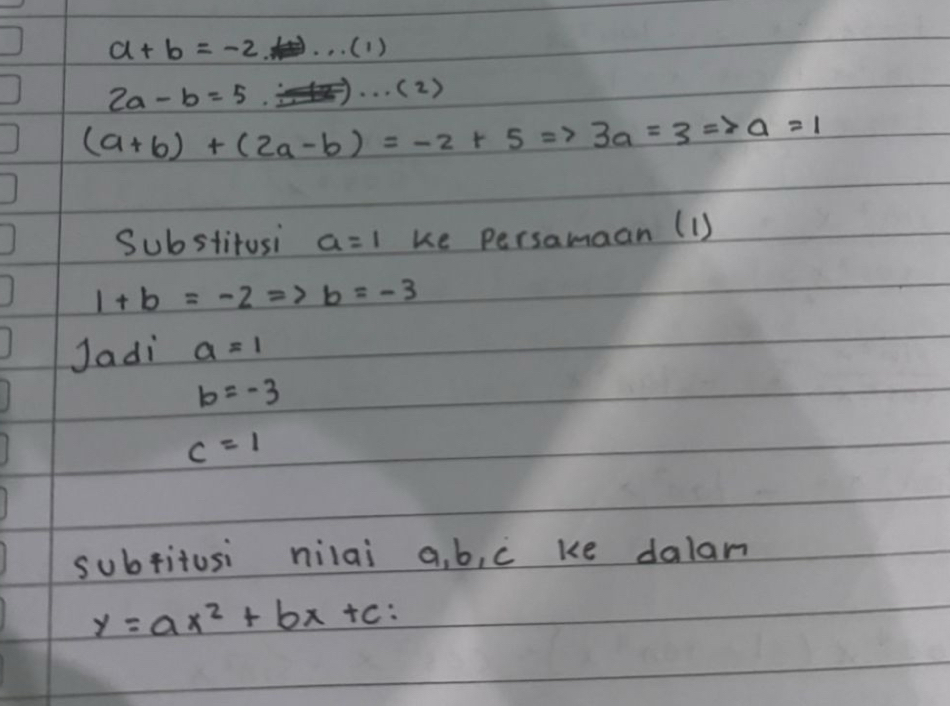 a + b = -2 ...(1)
2a - b = 5 . ...(2)
(a+b) + (2a-b) = -2 + 5 => 3a = 3 => a = 1
Substitusi a=1 ke Persamaan (1)
1 + b = -2 => b = -3
Jadi a = 1
b = -3
c = 1
subtitusi nilai a,b,c ke dalam
y = ax² + bx + c: